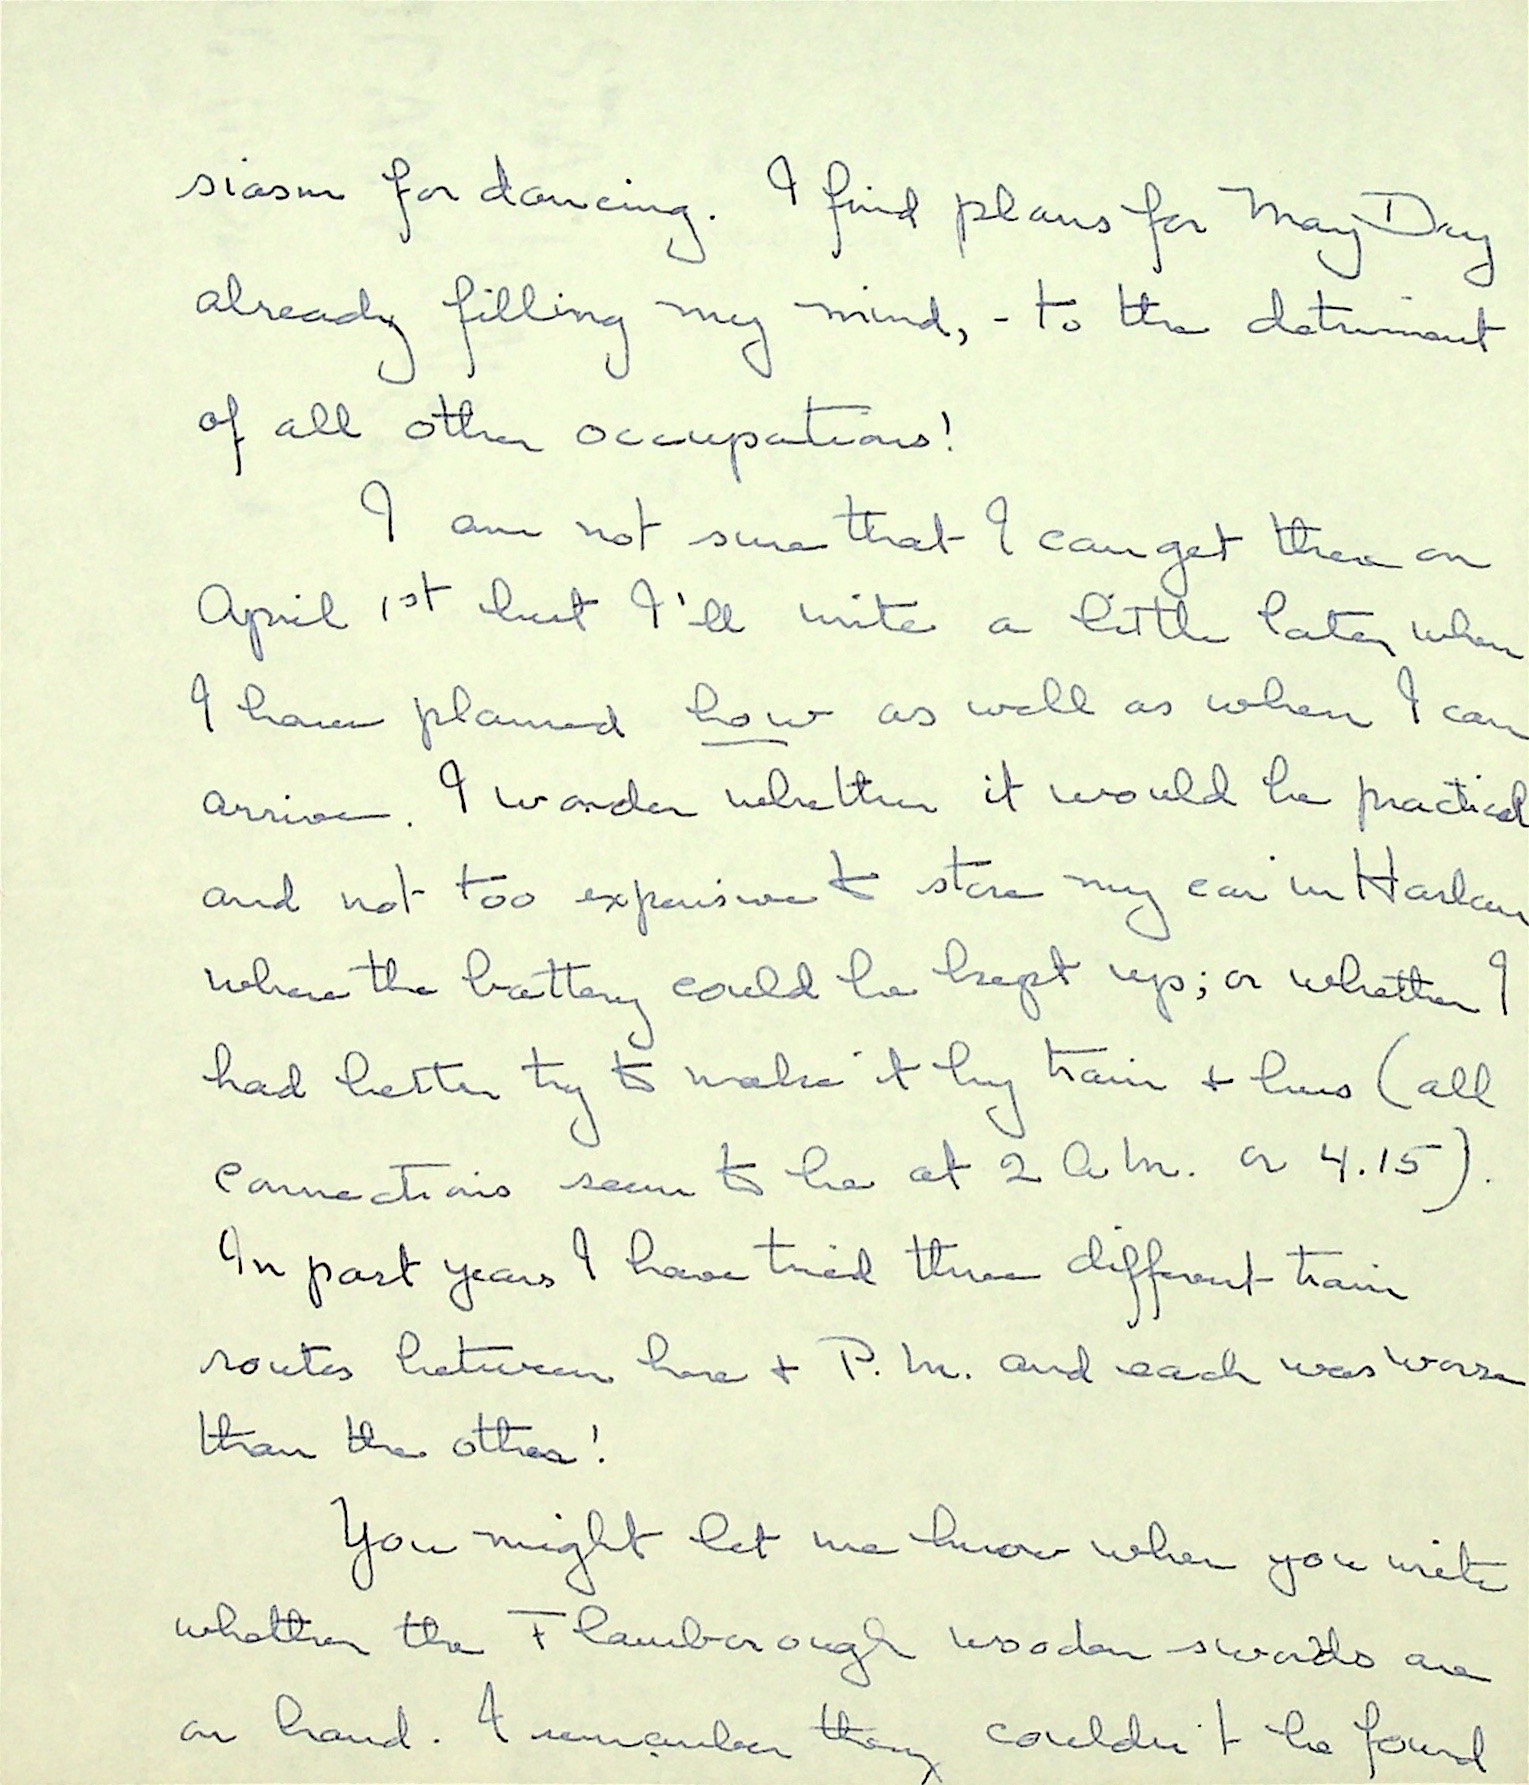 siasm for dancing. I find plans for May Day
already filling my mind, - to the detriment
of all other occupations!
I am not sure that I can get there on
April 1st but I'll write a little later when
I have planned how as well as when I can
arrive. I wonder whether it would be practical
and not too expensive to store my car in Harlan
where the battery could be kept up; or whether I
had better try to make it by train + bus (all
connections seem to be at 2 A.M. or 4.15).
In past years I have tried three different train
routes between here + P.M. and each was worse
than the other!
You might let me know when you write
whether the Flamborough wooden swords are
on hand. I remember they couldn't be found